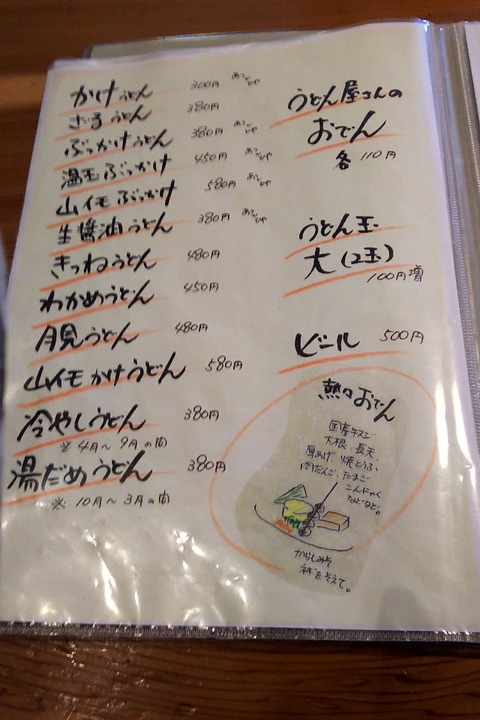 かけうどん 300円 あつ ひや
ざるうどん 380円
ぶっかけうどん 380円 あつ ひや
温玉ぶっかけ 450円 あつ ひや
山イモぶっかけ 580円 あつ ひや
生醤油うどん 380円 あつ ひや
きつねうどん 480円
わかめうどん 450円
月見うどん 480円
山イモかけうどん 580円
冷やしうどん 380円
※4月〜9月の間
湯だめうどん 380円
※10月〜3月の間
うどん屋さんの
おでん
各 110円
うどん玉
大(2玉)
100円増
ビール 500円
熱々おでん
国産牛スジ
大根、長天
厚あげ、焼とうふ
肉だんご、たまご
こんにゃく
などなど。
からしみそ
ネギを添えて。